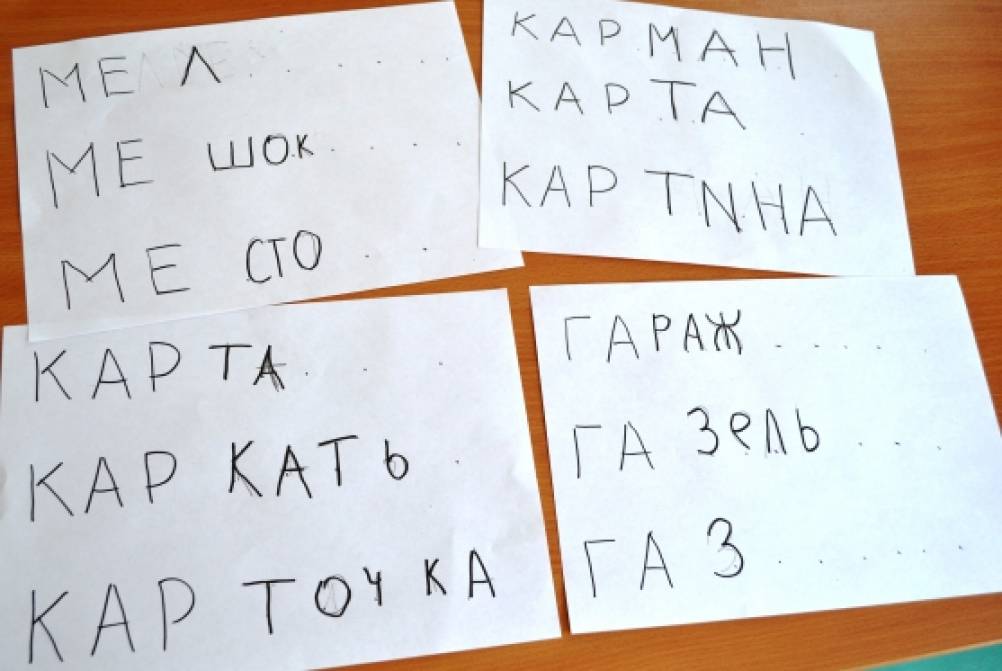 МЕ Л
МЕ ШОК
МЕ СТО
КАРМАН
КАРТА
КАР ТNНА
КАР ТА
КАР КАТЬ
КАР ТОЧКА
ГАРАЖ
ГА ЗеЛЬ
ГА З